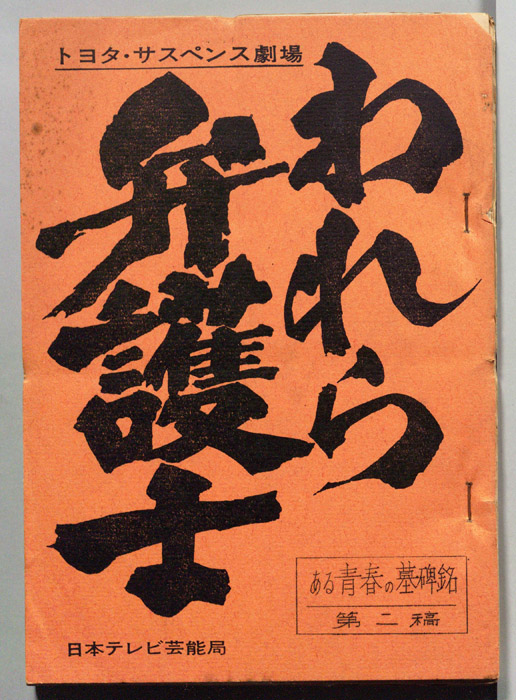 トヨタ・サスペンス劇場
われら
弁護士
ある青春の墓碑銘
第二稿
日本テレビ芸能局